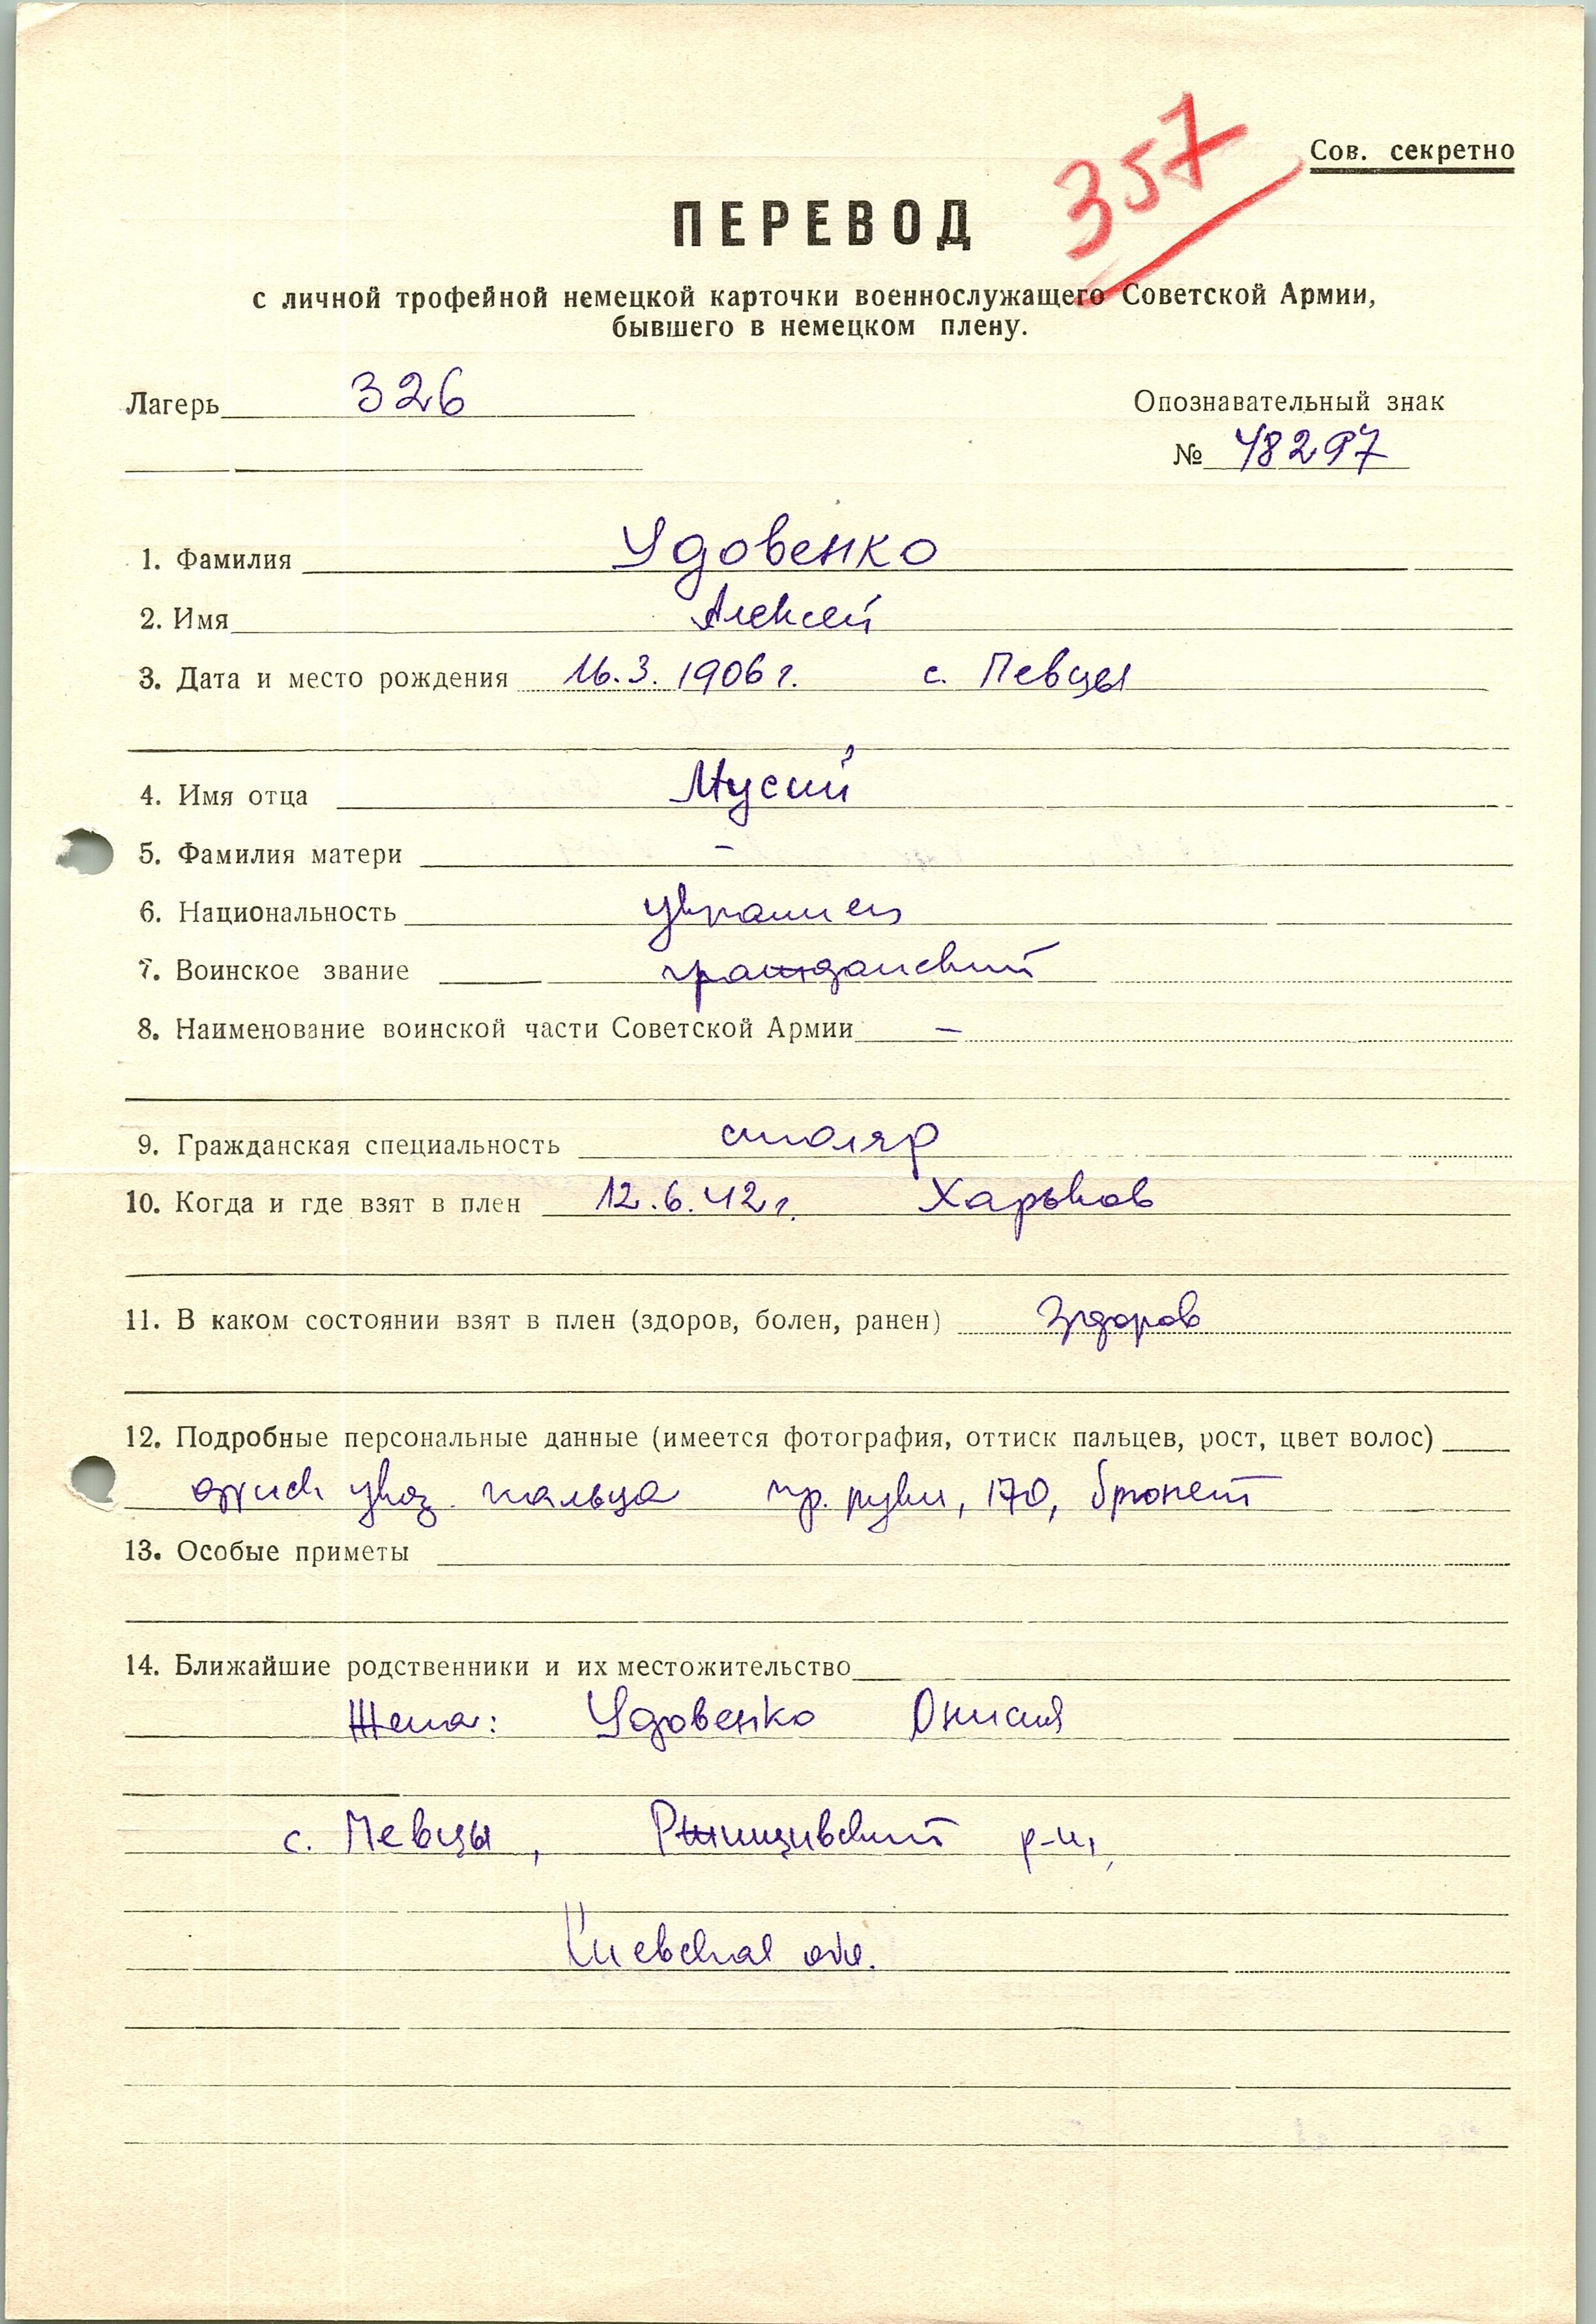 357
Сов. секретно
ПЕРЕВОД
с личной трофейной немецкой карточки военнослужащего Советской Армии,
бывшего в немецком плену.
Лагерь 326
Опознавательный знак
№ 48297
1. Фамилия Удовенко
2. Имя Алексей
3. Дата и место рождения 16.3.1906 г. с. Певцы
4. Имя отца Мусий
5. Фамилия матери –
6. Национальность украинец
7. Воинское звание гражданский
8. Наименование воинской части Советской Армии –
9. Гражданская специальность столяр
10. Когда и где взят в плен 12.6.42 г. Харьков
11. В каком состоянии взят в плен (здоров, болен, ранен) Здоров
12. Подробные персональные данные (имеется фотография, оттиск пальцев, рост, цвет волос)
указ. пальца пр. руки, 170, брюнет
13. Особые приметы
14. Ближайшие родственники и их местожительство
Жена: Удовенко Онисия
с. Певцы, р-н,
Киевская обл.